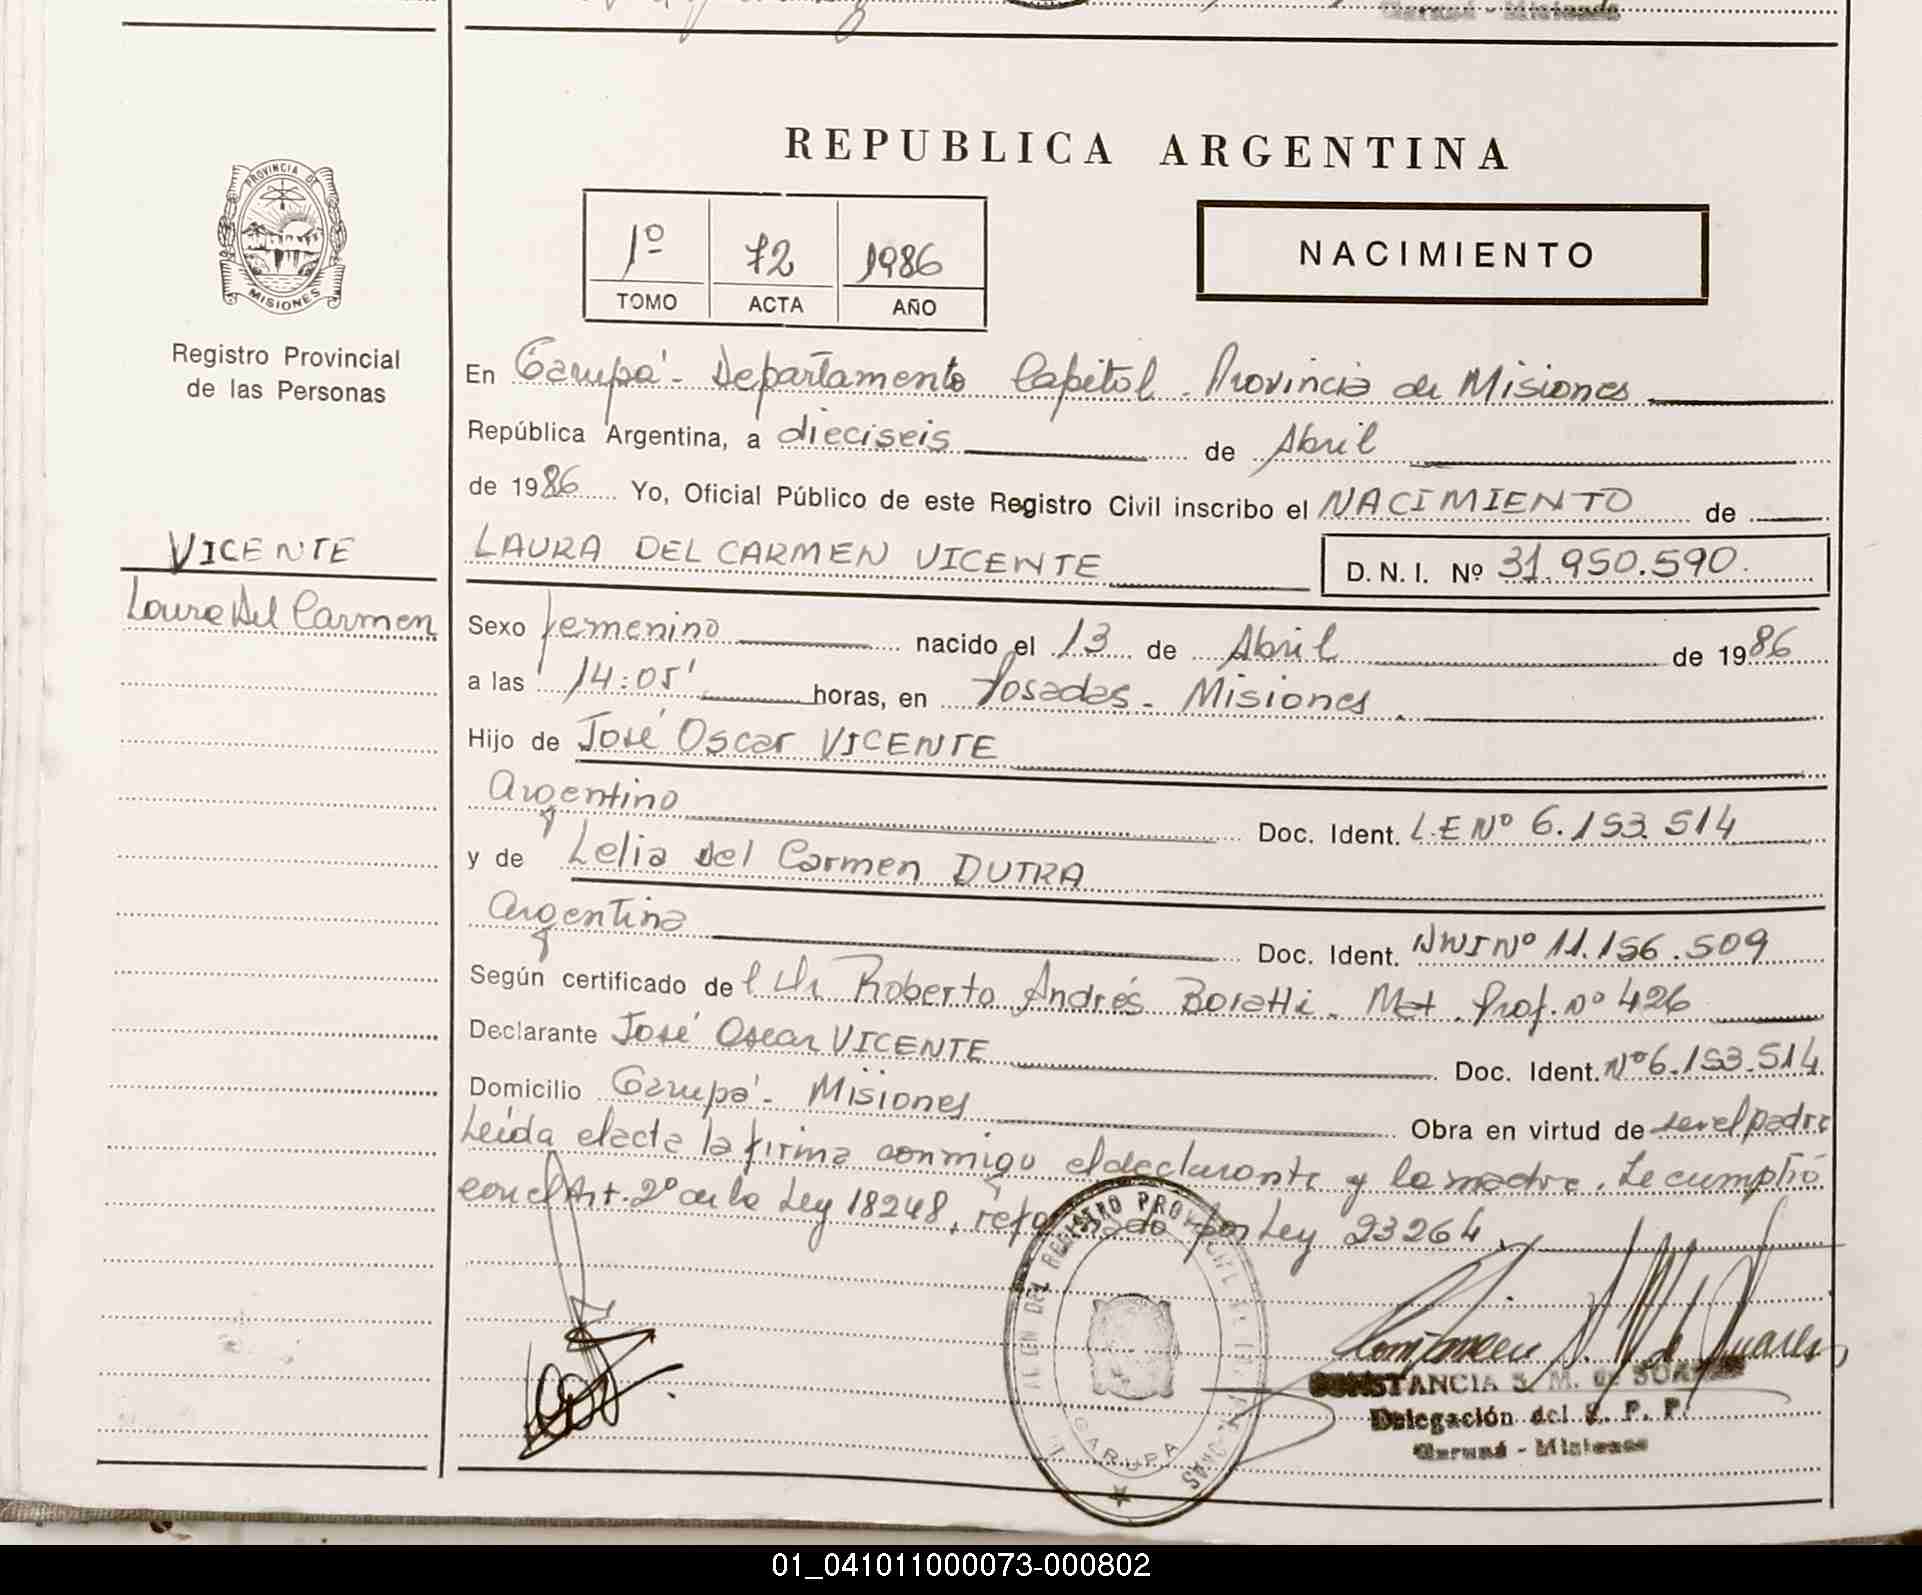 REPUBLICA ARGENTINA
PROVINCIA DE
MISIONES
Registro Provincial
de las Personas
1º 72 1986
TOMO ACTA AÑO
NACIMIENTO
En Garupá - Departamento Capital - Provincia de Misiones
República Argentina, a dieciseis de Abril
de 1986 Yo, Oficial Público de este Registro Civil inscribo el NACIMIENTO de
VICENTE
Laura Del Carmen
LAURA DEL CARMEN VICENTE D.N.I. Nº 31.950.590.
Sexo femenino nacido el 13 de Abril de 1986
a las 14:05' horas, en Posadas - Misiones.
Hijo de José Oscar VICENTE
Argentino Doc. Ident. L.E Nº 6.153.514
y de Lelia del Carmen DUTRA
Argentina Doc. Ident. Nº 11.156.509
Según certificado del Dr Roberto Andrés - Mat. Prof. Nº 426
Declarante José Oscar VICENTE Doc. Ident. Nº 6.153.514
Domicilio Garupá - Misiones Obra en virtud de ser el padre
Leída el acta la firma conmigo el declarante y la madre. Se cumplió
con el Art. 2º de la Ley 18248, reformado por Ley 23264.
DEL REGISTRO PROVINCIAL DE LAS PERSONAS
GARUPA
CONSTANCIA S. M. de SUAREZ
Delegación del R. P. P.
Garupá - Misiones
01_041011000073-000802